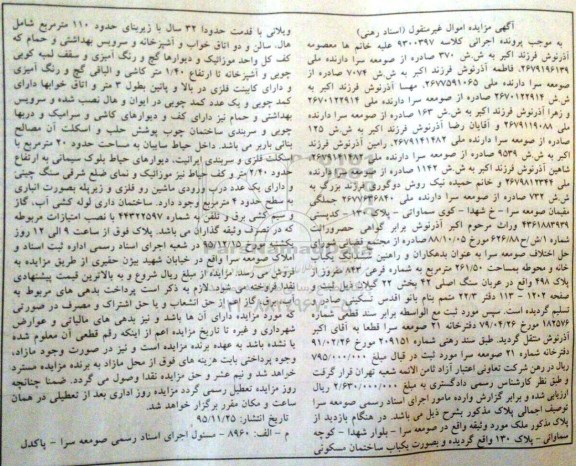 آگهی مزایده اموال غیرمنقول (اسناد رهنی)
به موجب پرونده اجرائی کلاسه ۹۳۰۰۳۹۷ علیه خانم ها معصومه
آذرنوش فرزند اکبر به ش.ش ۳۷۰ صادره از صومعه سرا دارنده ملی
۲۶۷۹۱۹۶۱۳۹، فاطمه آذرنوش فرزند اکبر به ش.ش ۷۰۷۴ صادره از
صومعه سرا دارنده ملی ۲۶۷۷۵۹۱۰۶۵، مهسا آذرنوش فرزند اکبر به
ش.ش صادره از صومعه سرا دارنده ملی ۲۶۷۰۱۲۲۹۱۴
و زهرا آذرنوش فرزند اکبر به ش.ش ۱۶۳ صادره از صومعه سرا دارنده
ملی ۲۶۷۹۱۱۹۰۸۸ و آقایان رضا آذرنوش فرزند اکبر به ش.ش ۱۲۵
صادره از صومعه سرا دارنده ملی ۲۶۷۹۱۴۱۴۸۲، رامین آذرنوش فرزند
اکبر به ش.ش ۹۵۳۹ صادره از صومعه سرا دارنده ملی
شاهین آذرنوش فرزند اکبر به ش.ش ۱۱۴۲ صادره از صومعه سرا دارنده
ملی ۲۶۷۹۸۱۲۳۴۴ و خانم حمیده نیک روش دوگوری فرزند بزرگ به
ش.ش ۷۳۲ صادره از صومعه سرا دارنده ملی جملگی
مقیمان صومعه سرا - خ شهدا - کوی سماواتی - پلاک ۱۳۰ - کدپستی
۴۳۶۱۸۸۳۹۳۹ وراث مرحوم اکبر آذرنوش برابر گواهی حصروراثت
شماره صادره از مجتمع قضائی شورای
حل اختلاف صومعه سرا به عنوان بدهکاران و راهنین ششدانگ یکباب
خانه و محوطه بمساحت ۲۶۱/۵۰ مترمربع به شماره فرعی ۸۴۳ مفروز از
پلاک ۴۹۸ واقع در عربان سنگ اصلی ۴۲ بخش ۲۲ گیلان ذیل ثبت و
صفحه ۱۲۰۲ - ۱۱۳ دفتر ۲۲/۳ متمم بنام بانو اقدس سکینی صادر و
تسلیم گردیده است. سپس مورد ثبت مع الواسطه برابر سند قطعی شماره
۱۸۲۵۷۶ مورخ ۷۹/۰۴/۲۶ دفترخانه ۲۱ صومعه سرا قطعا به آقای اکبر
آذرنوش منتقل گردید. طبق سند رهنی شماره ۲۰۹۱۵۱ مورخ ۹۱/۰۲/۲۶
دفترخانه شماره ۲۱ صومعه سرا مورد ثبت در قبال مبلغ ۷۹۵/۰۰۰/۰۰۰
ریال در رهن شرکت تعاونی اعتبار آزاد ثامن الائمه شعبه تهران قرار گرفت
و طبق نظر کارشناس رسمی دادگستری به مبلغ ۲/۶۳۰/۰۰۰/۰۰۰ ریال
ارزیابی شده و برابر گزارش وارده مامور اجرای اسناد رسمی صومعه سرا
توصیف اجمالی پلاک مذکور بشرح ذیل می باشد. در هنگام بازدید از
پلاک مذکور ملک مورد وثیقه واقع در صومعه سرا - بلوار شهدا - کوچه
سماواتی - پلاک ۱۳۰ واقع گردیده و بصورت یکباب ساختمان مسکونی
ویلائی با قدمت حدودا ۳۲ سال با زیربنای حدود ۱۱۰ مترمربع شامل
هال، سالن و دو اتاق خواب و آشپزخانه و سرویس بهداشتی و حمام که
کف کل واحد موزائیک و دیوارها گچ و رنگ آمیزی و سقف لمبه کوبی
چوبی و آشپزخانه تا ارتفاع ۱/۴۰ متر کاشی و الباقی گچ و رنگ آمیزی
و دارای کابینت فلزی در بالا و پائین بطول ۳ متر و اتاق خوابها دارای
کمد چوبی و یک عدد کمد چوبی در ایوان و هال نصب شده و سرویس
بهداشتی و حمام نیز دارای کف و دیوارهای کاشی و سرامیک و دربها
چوبی و سربندی ساختمان چوب پوشش حلب و اسکلت آن مصالح
بنائی باربر می باشد. داخل حیاط سایبان به مساحت حدود ۲۰ مترمربع با
اسکلت فلزی و سربندی ایرانیت، دیوارهای حیاط بلوک سیمانی به ارتفاع
حدود ۲/۴۰ متر و کف حیاط نیز موزائیک و نمای ضلع شرقی سنگ چینی
و دارای یک عدد درب ورودی ماشین رو فلزی و زیرپله بصورت انباری
به سطح حدود ۴ مترمربع وجود دارد. ساختمان داری لوله کشی آب، گاز
و سیم کشی برق و تلفن به شماره ۴۴۳۲۲۵۹۷ با نصب امتیازات مربوطه
که در تصرف وثیقه گذاران می باشد. پلاک فوق از ساعت ۹ الی ۱۲ روز
یکشنبه مورخ در شعبه اجرای اسناد رسمی اداره ثبت اسناد و
املاک صومعه سرا واقع در خیابان شهید بیژن حقیری از طریق مزایده به
فروش می رسد. مزایده از مبلغ ریال شروع و به بالاترین قیمت پیشنهادی
نقدا فروخته می شود. لازم به ذکر است پرداخت بدهی های مربوط به
آب، برق، گاز اعم از حق انشعاب و یا حق اشتراک و مصرف در صورتی
که مورد مزایده دارای آن ها باشد و نیز بدهی های مالیاتی و عوارض
شهرداری و غیره تا تاریخ مزایده اعم از اینکه رقم قطعی آن معلوم شده
یا نشده باشد به عهده برنده مزایده است و نیز در صورت وجود مازاد،
وجوه پرداختی بابت هزینه های فوق از محل مازاد به برنده مزایده مسترد
خواهد شد و نیم عشر و حق مزایده نقدا وصول می گردد. ضمنا چنانچه
روز مزایده تعطیل رسمی گردد مزایده روز اداری بعد از تعطیلی در همان
ساعت و مکان مقرر برگزار خواهد شد.
تاریخ انتشار: ۹۵/۱۱/۲۵
م - الف: ۸۹۶۰ - مسئول اجرای اسناد رسمی صومعه سرا - پاکدل